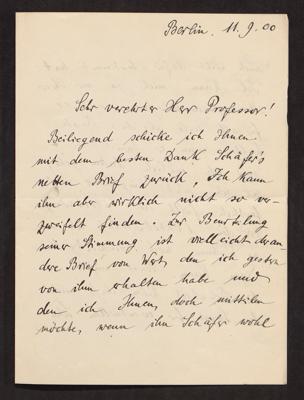 Berlin. 11.9.00
Sehr verehrter Herr Professor!
Beiliegend schicke ich Ihnen
mit dem besten Dank Schäfer's
netten Brief zurück, Ich kann
ihn aber wirklich nicht so ver-
zweifelt finden. Zur Beurteilung
seiner Stimmung ist vielleicht der an
dere Brief von Wert, den ich gestern
von ihm erhalten habe und
den ich Ihnen doch mitteilen
möchte, wenn ihn Schäfer wohl